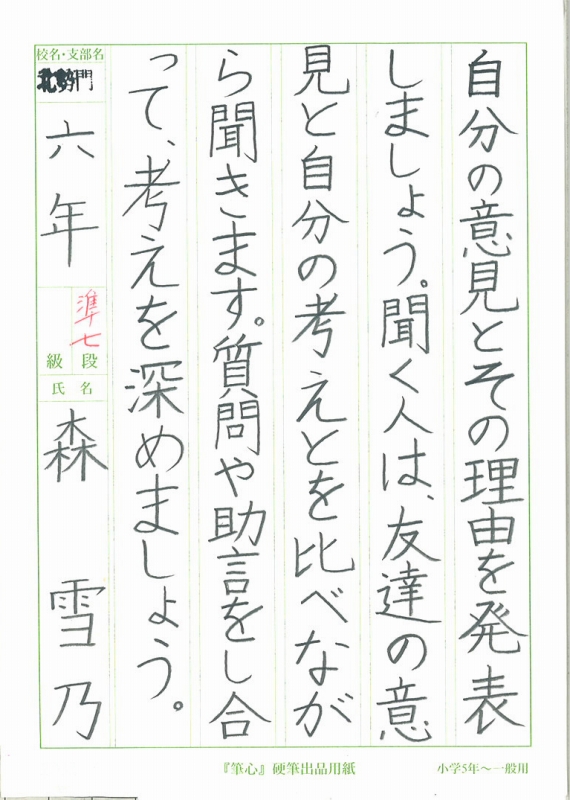 自分の意見とその理由を発表
しましょう。聞く人は、友達の意
見と自分の考えとを比べなが
ら聞きます。質問や助言をし合
って、考えを深めましょう。
校名・支部名
北勢門
六年
準七
級 段
氏 名
森 雪乃
『筆心』硬筆出品用紙
小学5年〜一般用